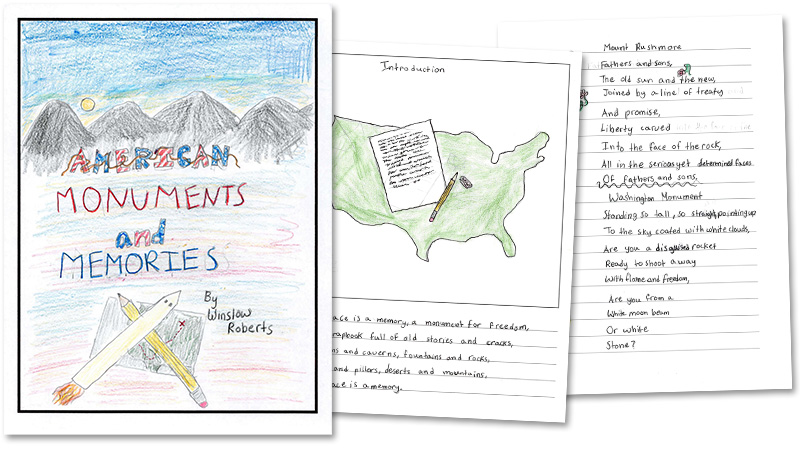 AMERICAN
MONUMENTS
and
MEMORIES
By
Winslow
Roberts
Introduction
ace is a memory, a monument for freedom,
rapbook full of old stories and cracks,
ns and caverns, fountains and rocks,
and pillars, deserts and mountains,
ace is a memory.
Mount Rushmore
Fathers and sons,
The old sun and the new,
Joined by a line of treaty
And promise,
Liberty carved
Into the face of the rock,
All in the serious yet determined faces
Of fathers and sons,
Washington Monument
Standing so tall, so straight, pointing up
To the sky coated with white clouds,
Are you a disguised rocket
Ready to shoot away
With flame and freedom,
Are you from a
White moon beam
Or white
Stone?